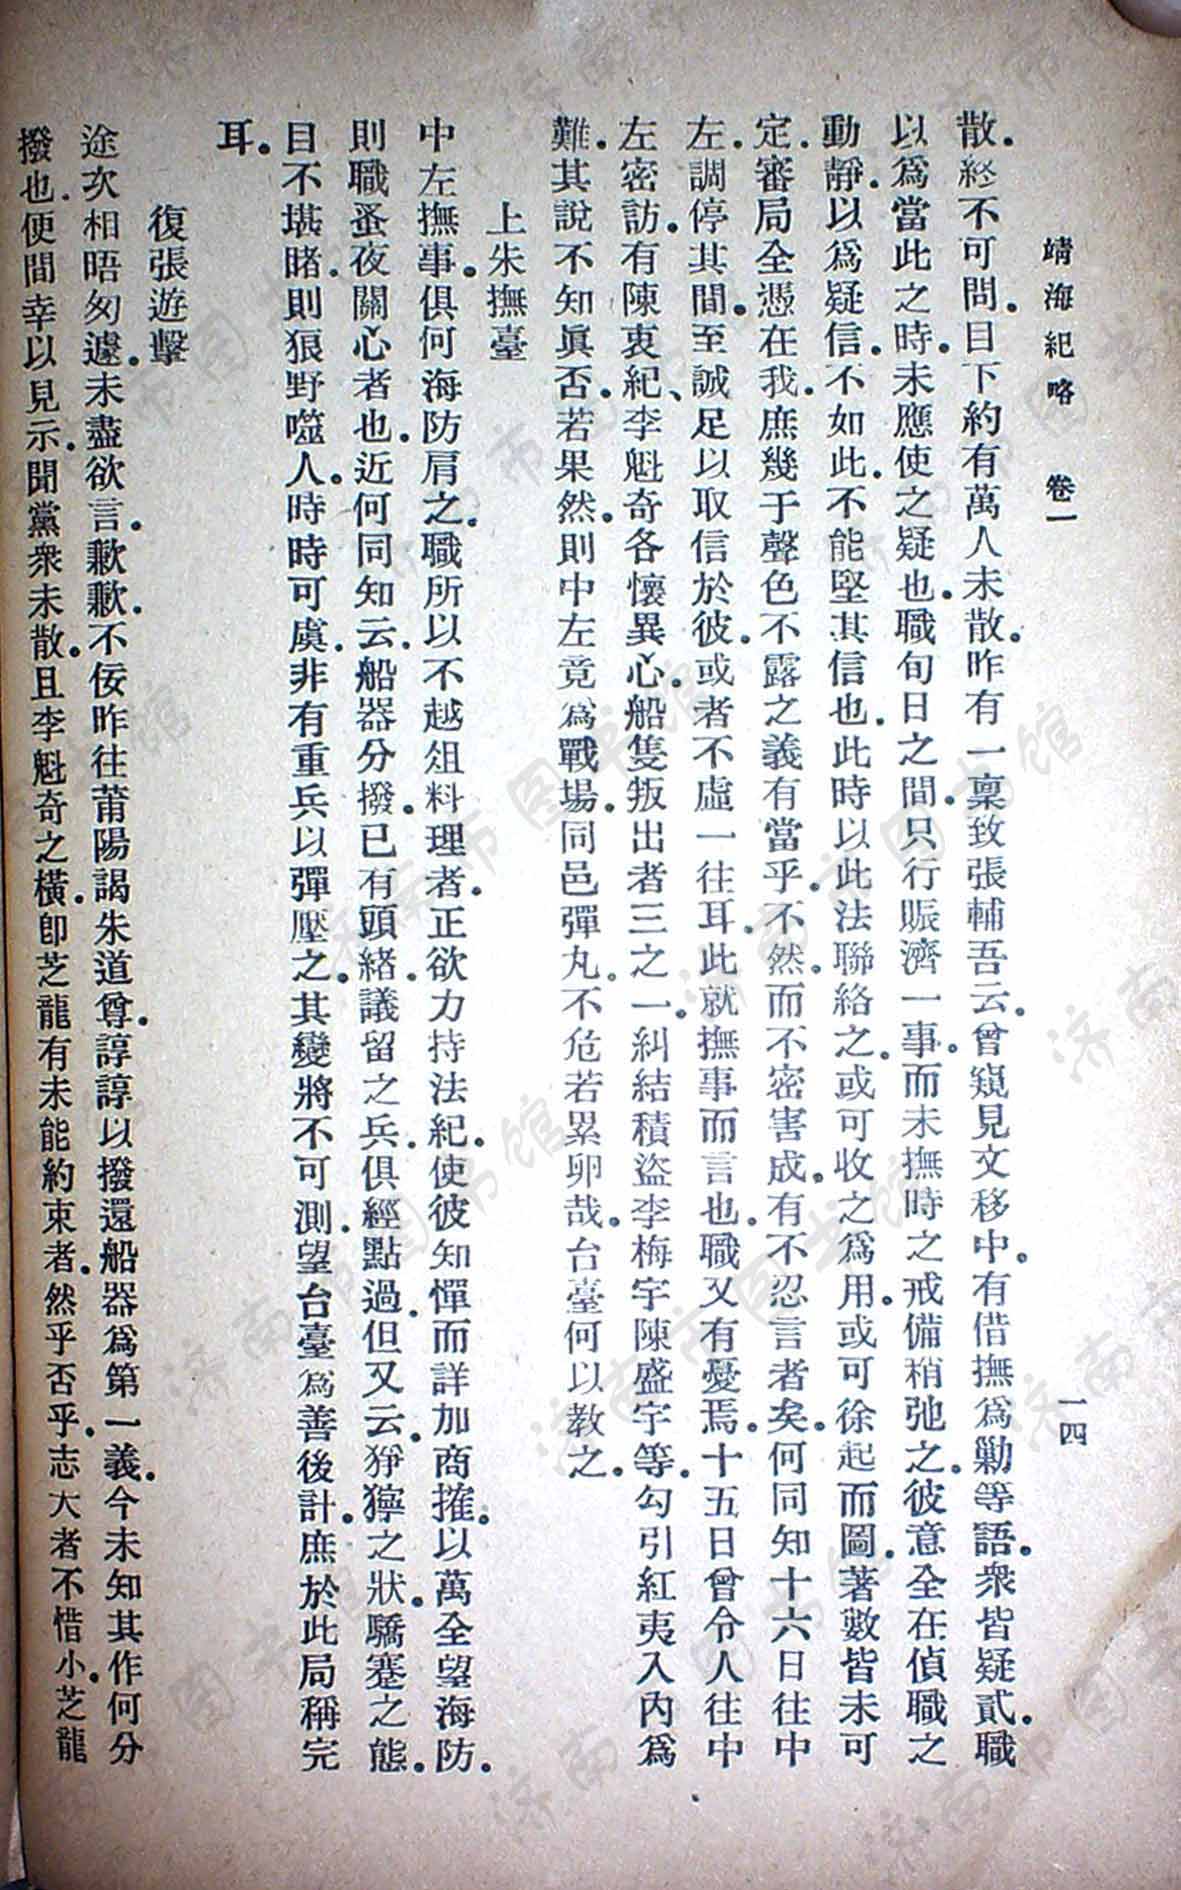 靖海紀略 卷一 一四
散。終不可問。目下約有萬人未散。昨有一稟致張輔吾云。曾窺見文移中。有借撫爲勦等語。衆皆疑貳。職
以爲當此之時。未應使之疑也。職旬日之間。只行賑濟一事。而未撫時之戒備稍弛之。彼意全在偵職之
動靜。以爲疑信。不如此。不能堅其信也。此時以此法聯絡之。或可收之爲用。或可徐起而圖。著數皆未可
定。審局全憑在我。庶幾于聲色不露之義有當乎。不然。而不密害成。有不忍言者矣。何同知十六日往中
左。調停其間。至誠足以取信於彼。或者不虛一往耳。此就撫事而言也。職又有憂焉。十五日曾令人往中
左密訪。有陳衷紀、李魁奇各懷異心。船隻叛出者三之一。糾結積盜李梅宇陳盛宇等。勾引紅夷入內爲
難。其說不知眞否。若果然。則中左竟爲戰場。同邑彈丸。不危若累卵哉。台臺何以教之。
上朱撫臺
中左撫事。俱何海防肩之。職所以不越俎料理者。正欲力持法紀。使彼知憚。而詳加商搉。以萬全望海防。
則職蚤夜關心者也。近何同知云。船器分撥。已有頭緒。議留之兵。俱經點過。但又云。猙獰之狀。驕蹇之態。
目不堪睹。則狼野噬人。時時可虞。非有重兵以彈壓之。其變將不可測。望台臺爲善後計。庶於此局稱完
耳。
復張遊擊
途次相晤匆遽。未盡欲言。歉歉。不佞昨往莆陽謁朱道尊。諄諄以撥還船器爲第一義。今未知其作何分
撥也。便間幸以見示。聞黨衆未散。且李魁奇之橫。卽芝龍有未能約束者。然乎否乎。志大者不惜小。芝龍
济南市图书馆